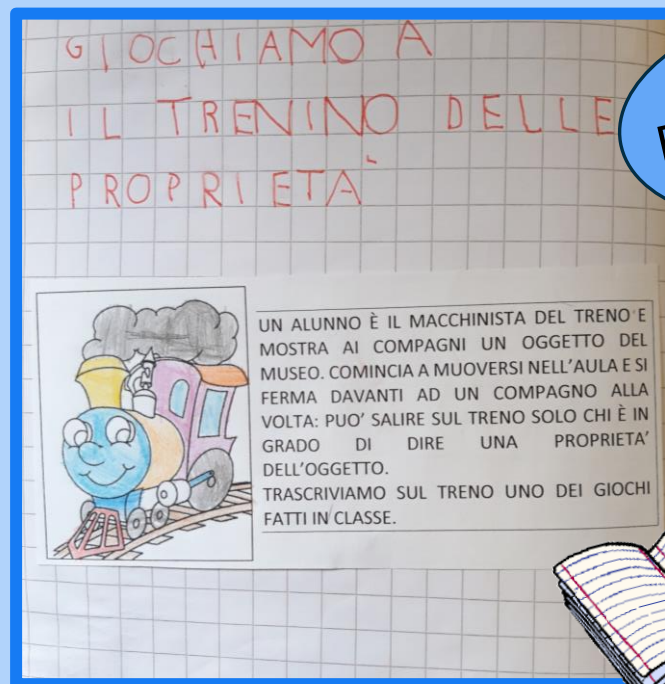 GIOCHIAMO A
IL TRENINO DELLE
PROPRIETÀ
UN ALUNNO È IL MACCHINISTA DEL TRENO E
MOSTRA AI COMPAGNI UN OGGETTO DEL
MUSEO. COMINCIA A MUOVERSI NELL'AULA E SI
FERMA DAVANTI AD UN COMPAGNO ALLA
VOLTA: PUO' SALIRE SUL TRENO SOLO CHI È IN
GRADO DI DIRE UNA PROPRIETA'
DELL'OGGETTO.
TRASCRIVIAMO SUL TRENO UNO DEI GIOCHI
FATTI IN CLASSE.